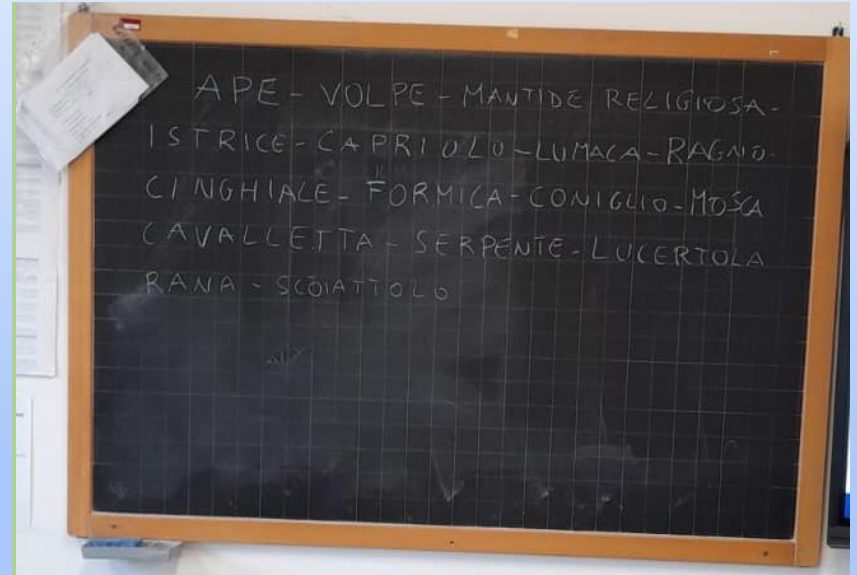 APE - VOLPE - MANTIDE RELIGIOSA -
ISTRICE - CAPRIOLO - LUMACA - RAGNO -
CINGHIALE - FORMICA - CONIGLIO - MOSCA
CAVALLETTA - SERPENTE - LUCERTOLA
RANA - SCOIATTOLO